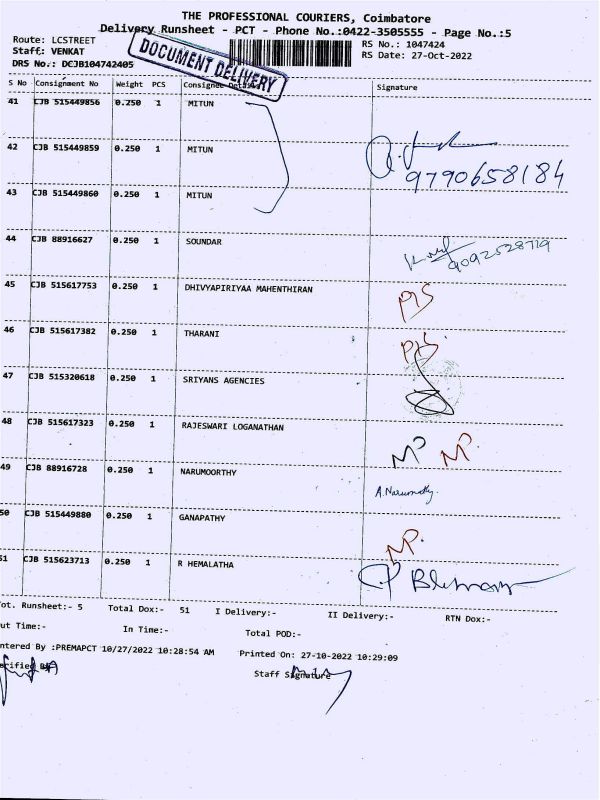 THE PROFESSIONAL COURIERS, Coimbatore
Delivery Runsheet - PCT - Phone No.:0422-3505555 - Page No.:5
Route: LCSTREET RS No.: 1047424
Staff: VENKAT RS Date: 27-Oct-2022
DRS No.: DCJB104742405
DOCUMENT DELIVERY
S No Consignment No Weight PCS Consignee Details Signature
41 CJB 515449856 0.250 1 MITUN
42 CJB 515449859 0.250 1 MITUN
9790658184
43 CJB 515449860 0.250 1 MITUN
44 CJB 88916627 0.250 1 SOUNDAR
9092528719
45 CJB 515617753 0.250 1 DHIVYAPIRIYAA MAHENTHIRAN
46 CJB 515617382 0.250 1 THARANI
47 CJB 515320618 0.250 1 SRIYANS AGENCIES
48 CJB 515617323 0.250 1 RAJESWARI LOGANATHAN MP MP.
49 CJB 88916728 0.250 1 NARUMOORTHY
50 CJB 515449880 0.250 1 GANAPATHY MP.
51 CJB 515623713 0.250 1 R HEMALATHA
Tot. Runsheet:- 5 Total Dox:- 51 I Delivery:- II Delivery:- RTN Dox:-
Out Time:- In Time:- Total POD:-
ntered By :PREMAPCT 10/27/2022 10:28:54 AM Printed On: 27-10-2022 10:29:09
Staff Signature